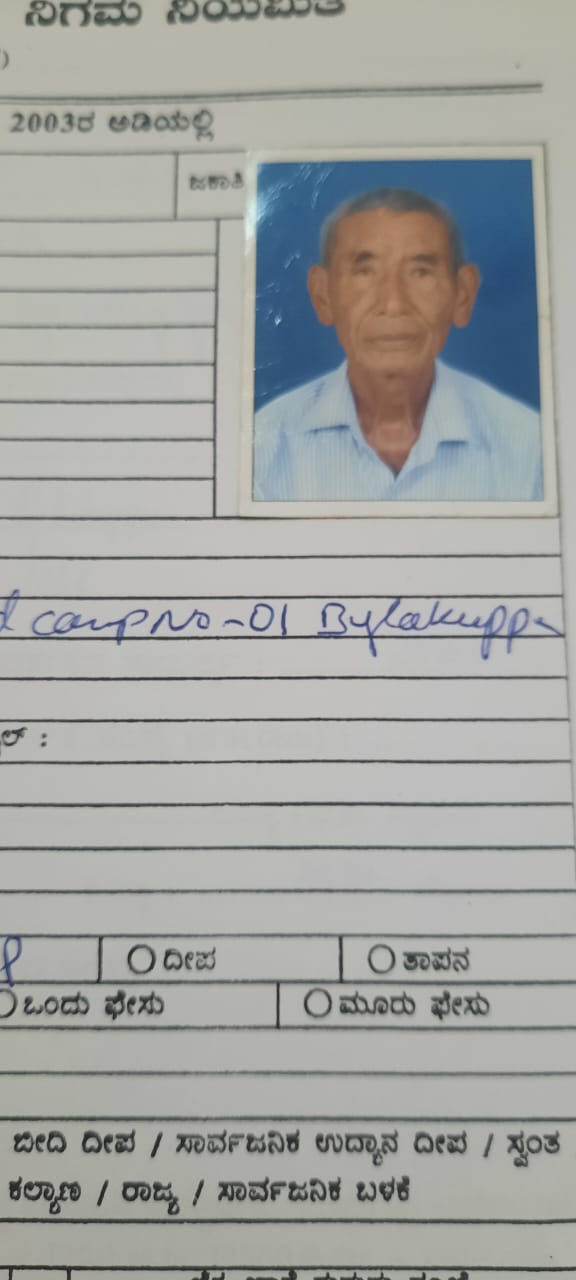 ನಿಗಮ ನಿಯಮಿತ
)
2003ರ ಅಡಿಯಲ್ಲಿ
ಜಕಾತಿ
camp No-01 Bylakuppe
ಲ್ :
ದೀಪ
ತಾಪನ
ಒಂದು ಫೇಸು
ಮೂರು ಫೇಸು
ಬೀದಿ ದೀಪ / ಸಾರ್ವಜನಿಕ ಉದ್ಯಾನ ದೀಪ / ಸ್ವಂತ
ಕಲ್ಯಾಣ / ರಾಜ್ಯ / ಸಾರ್ವಜನಿಕ ಬಳಕೆ